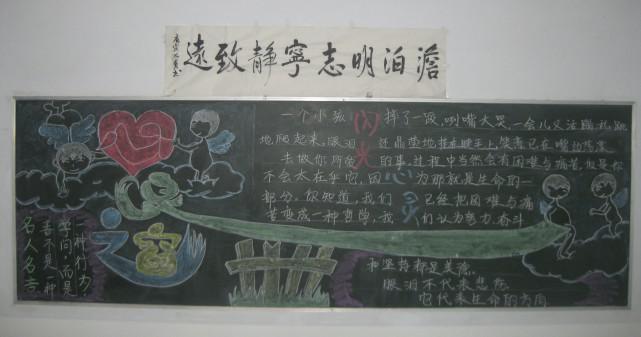 遠致靜寧志明泊澹
一个小孩闪摔了一跤,咧嘴大哭,一会儿又活蹦乱跳
地爬起来,眼泪还晶莹地挂在睫毛上,笑意已在嘴边荡漾
去做你所 光 的事,过程中当然会有困难与痛苦,但是你
不会太在乎它,因心为那就是生命的一
部分。你知道,我们灵已经把困难与痛
苦变成一种哲学,我们认为努力奋斗
和坚持都是美德。
眼泪不代表悲伤
它代表生命的方向
之窗
一种行为
学问,而是
善不是一种
名人名言